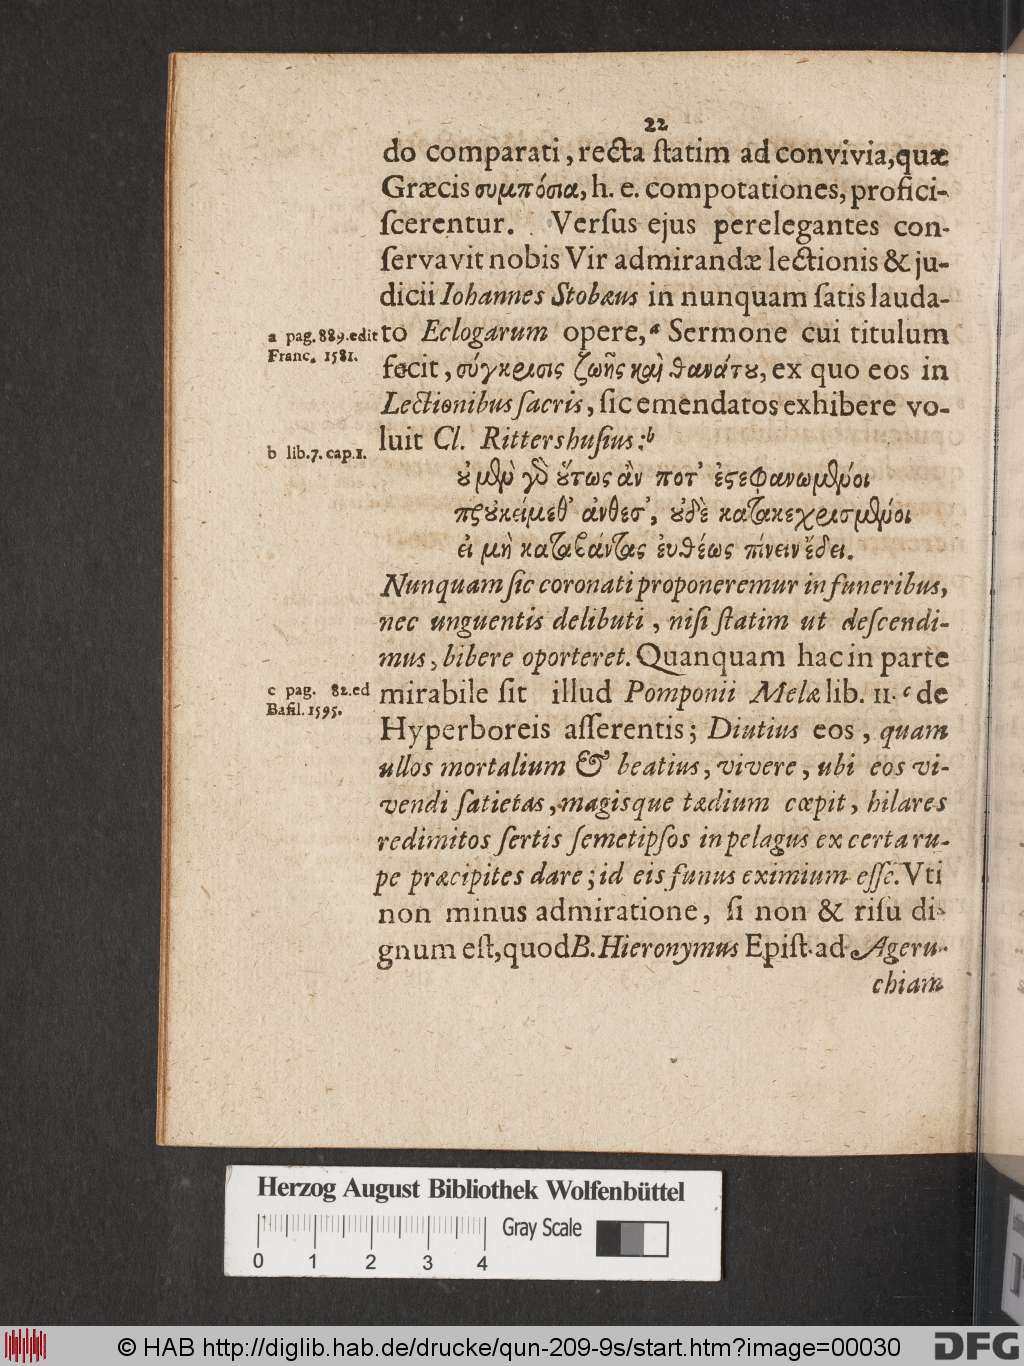 22
do comparati, recta ſtatim ad convivia, quæ
Græcis συμπόσια, h. e. compotationes, profici-
ſcerentur. Verſus ejus perelegantes con-
ſervavit nobis Vir admirandæ lectionis & ju-
dicii Iohannes Stobæus in nunquam ſatis lauda-
a pag. 889. edit
Franc. 1581.
to Eclogarum opere, a Sermone cui titulum
fecit, σύγκρισις ζωῆς καὶ θανάτου, ex quo eos in
Lectionibus ſacris, ſic emendatos exhibere vo-
b lib. 7. cap. 1.
luit Cl. Rittershuſius: b
οὐ μὲν γὸ οὕτως ἂν ποτ' ἐστεφανωμένοι
προὐκείμεθ' ἀνθεσ', οὐδὲ κατακεχρισμένοι
εἰ μὴ καταβάντας ἐυθέως πίνειν ἔδει.
Nunquam ſic coronati proponeremur in funeribus,
nec unguentis delibuti, niſi ſtatim ut deſcendi-
mus, bibere oporteret. Quanquam hac in parte
c pag. 82. ed
Baſil. 1595.
mirabile ſit illud Pomponii Melæ lib. 11. c de
Hyperboreis aſſerentis; Diutius eos, quam
ullos mortalium & beatius, vivere, ubi eos vi-
vendi ſatietas, magisque tædium cœpit, hilares
redimitos ſertis ſemetipſos in pelagus ex certa ru-
pe præcipites dare; id eis funus eximium eſſe. Vti
non minus admiratione, ſi non & riſu di-
gnum eſt, quod B. Hieronymus Epiſt. ad Ageru-
chiam
Herzog August Bibliothek Wolfenbüttel
Gray Scale
0 1 2 3 4
© HAB http://diglib.hab.de/drucke/qun-209-9s/start.htm?image=00030
DFG